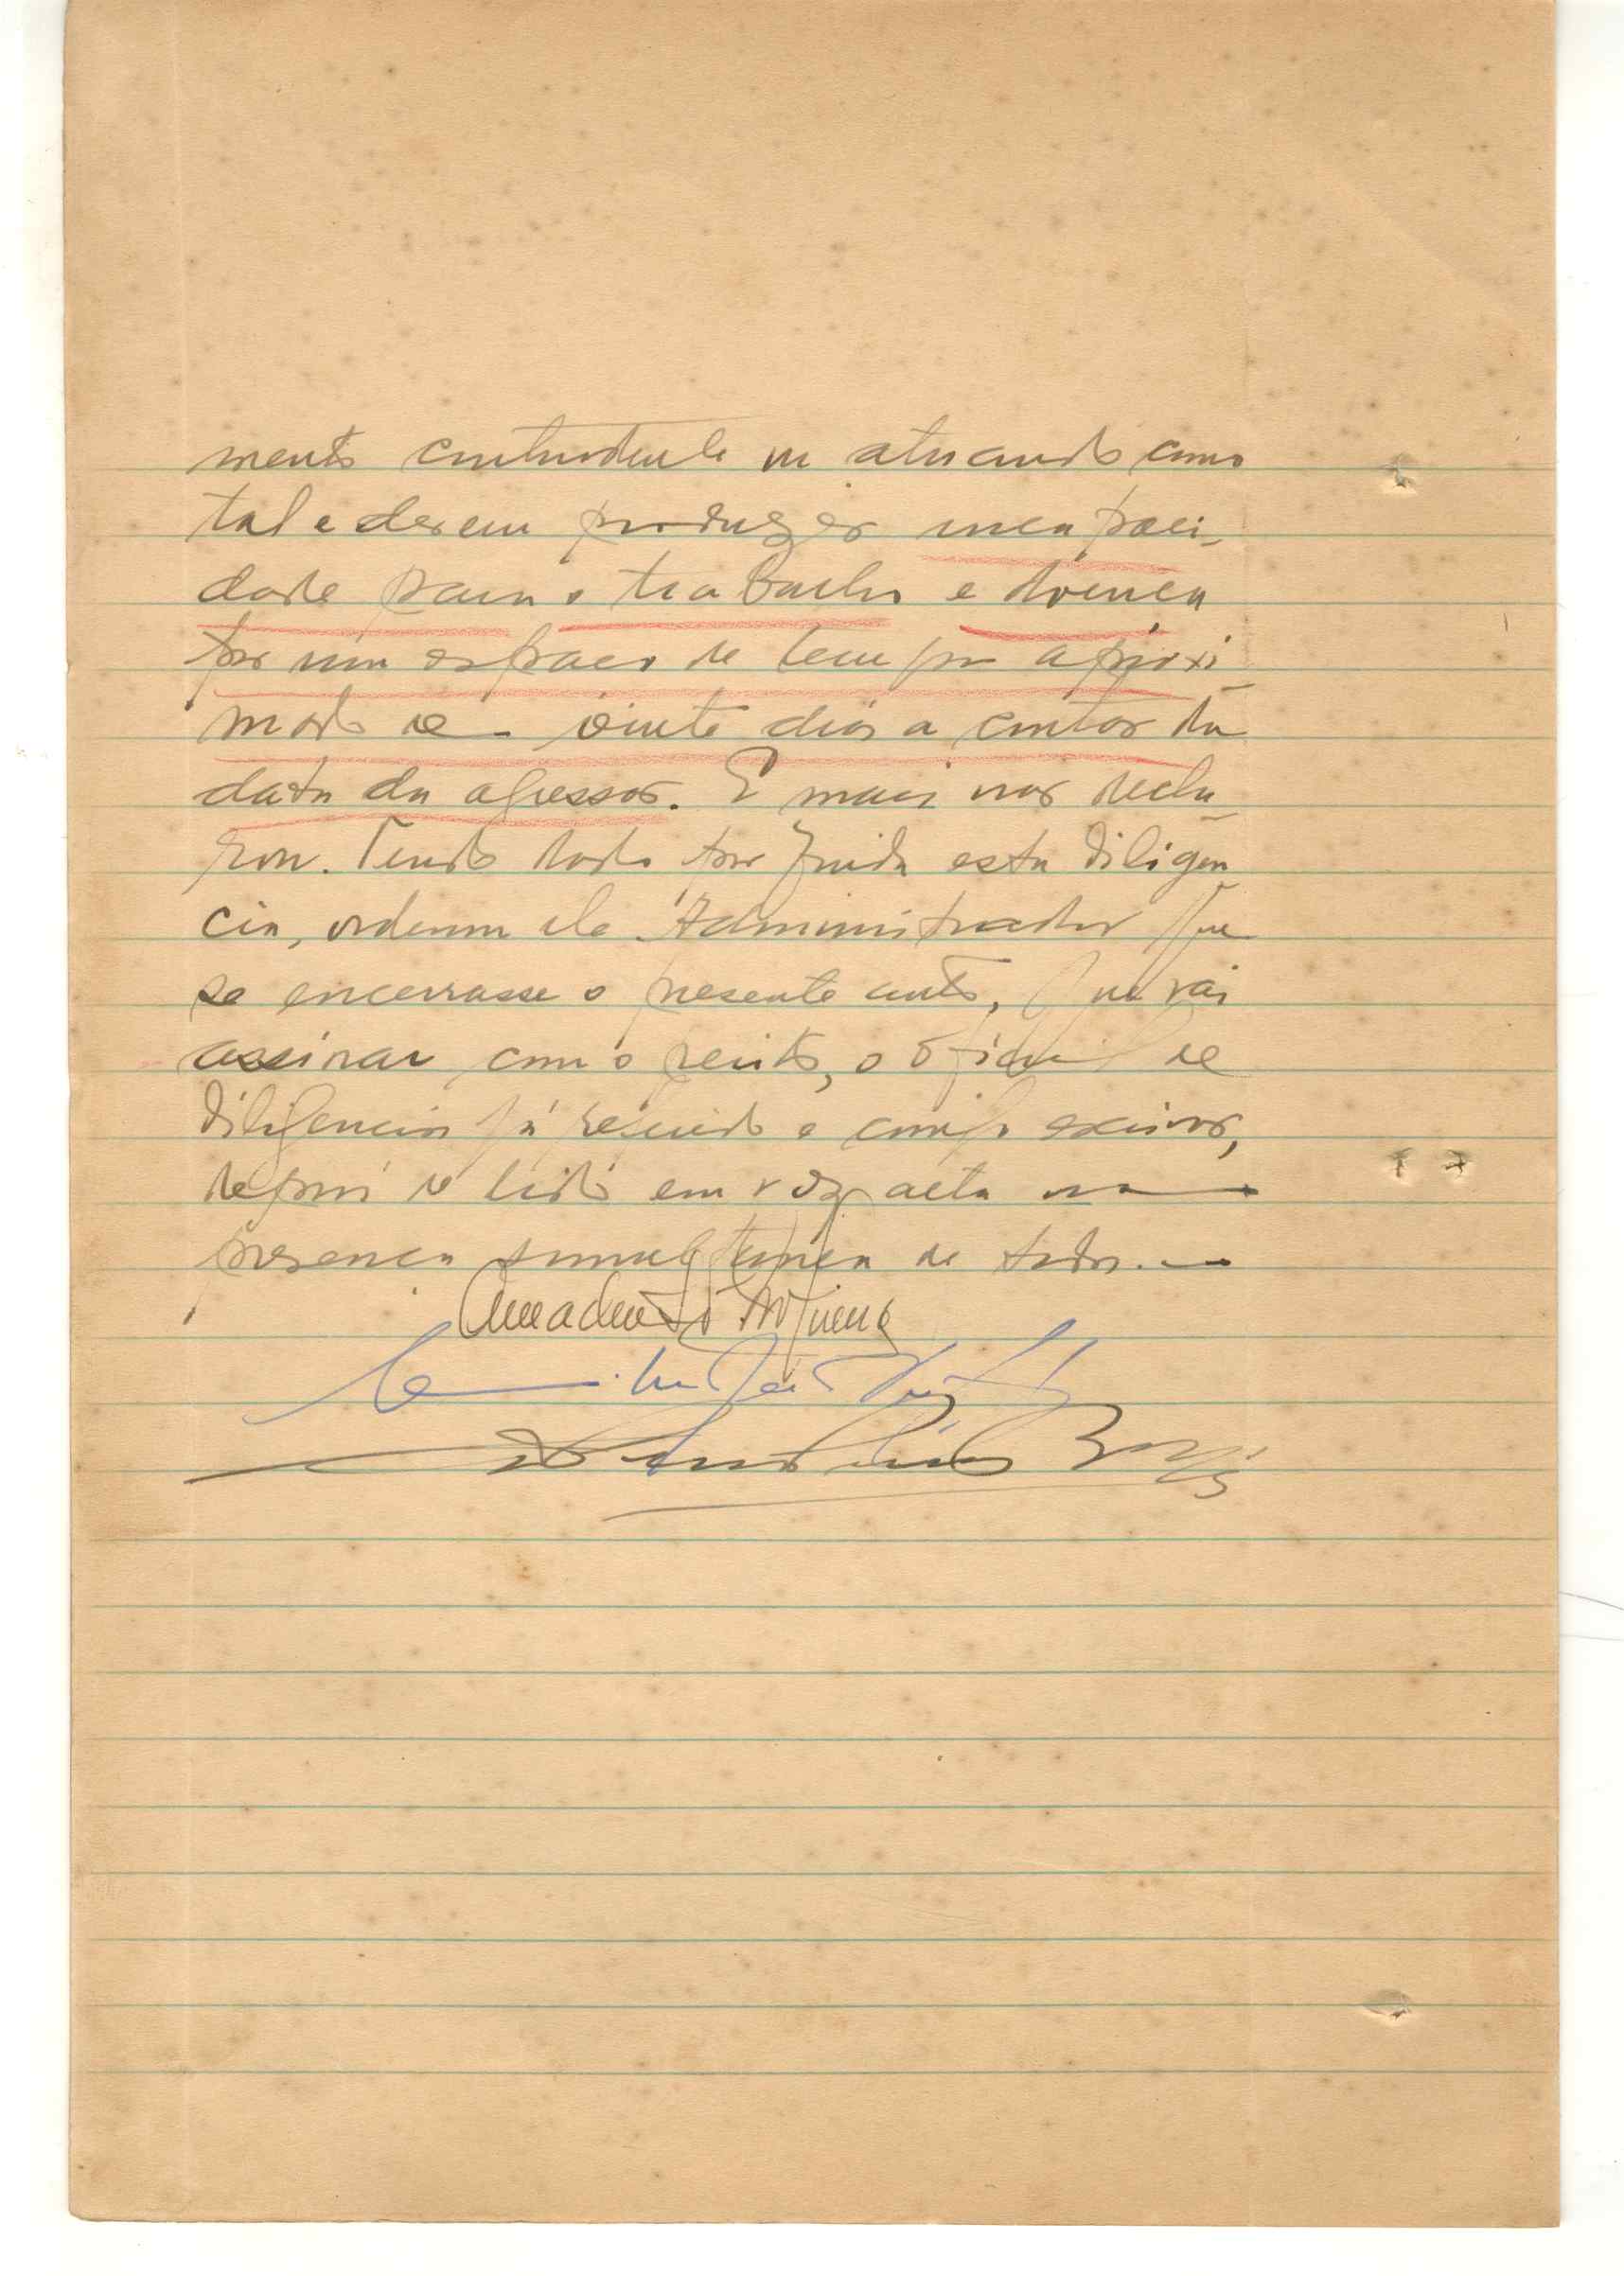 mento contundente ou atuando como
tal e devem produzir incapaci-
dade para o trabalho e doença
por um espaço de tempo aproxi-
mado de - vinte dias a contar da
data da agressão. E mais não decla-
rou. Tendo dado por finda esta diligen
cia, ordenou ele Administrador que
se encerrasse o presente auto, que vai
assinar com o perito, o oficial de
diligencias já referido e comigo escrivão,
depois de lido em voz alta na
presença simultanea de todos.
Amadeu